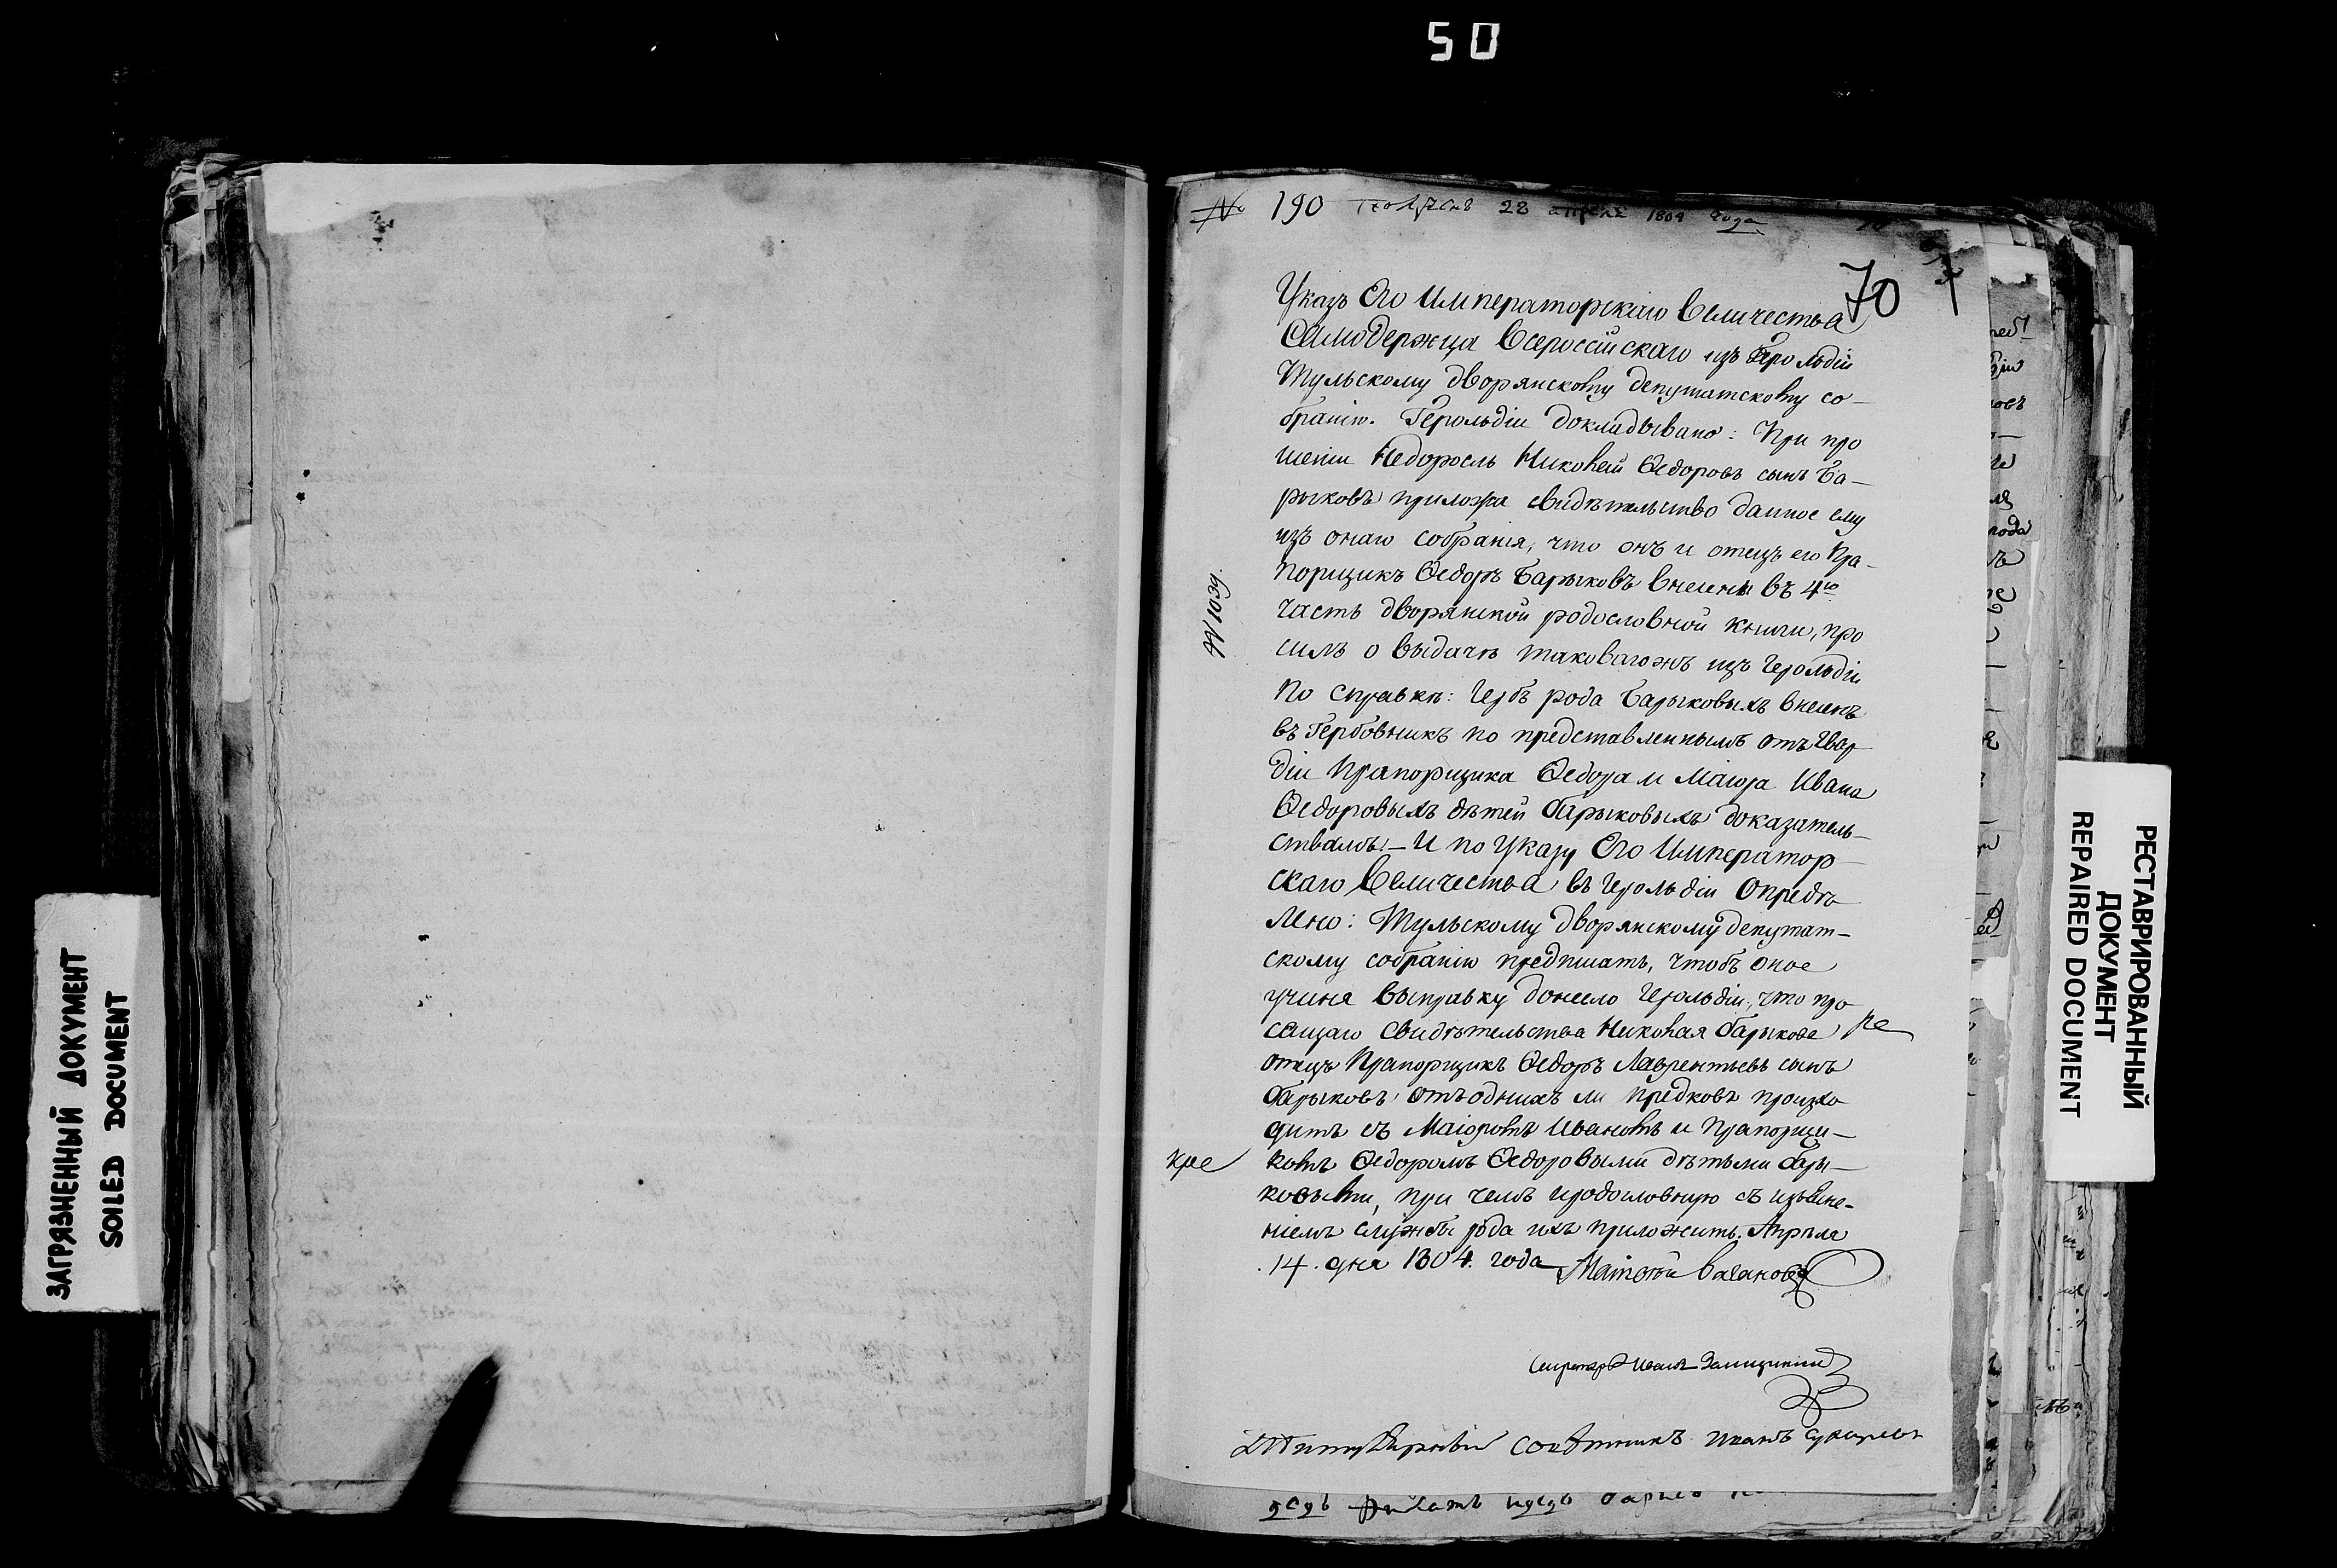 50
ЗАГРЯЗНЕННЫЙ ДОКУМЕНТ
SOILED DOCUMENT
№ 190 Получен 28 апреля 1804 года
70
Указъ Его Императорскаго Величества
Самодержца Всероссійскаго изъ Герольдіи
Тульскому дворянскому депутатскому со-
бранію. Герольдіи докладывано: При про
шеніи Недоросль Николай Ѳедоровъ сынъ Ба-
рыковъ приложа свидѣтельство данное ему
изъ онаго собранія, что онъ и отецъ его Пра-
порщикъ Ѳедоръ Барыковъ внесены въ 4ю
часть дворянской родословной книги, про
силъ о выдачѣ таковагожъ изъ Герольдіи
По справкѣ: Гербъ рода Барыковыхъ внесенъ
въ Гербовникъ по представленнымъ отъ Гвар
діи Прапорщика Ѳедора и Маіора Ивана
Ѳедоровыхъ дѣтей Барыковыхъ доказатель-
ствамъ. — И по Указу Его Император
скаго Величества въ Герольдіи Опредѣ
лено: Тульскому дворянскому депутат-
скому собранію предписать, чтобъ оное
учиня выправку донесло Герольдіи, что про
сящаго свидѣтельства Николая Барыкова
отецъ Прапорщикъ Ѳедоръ Лаврентьевъ сынъ
Барыковъ отъ однихъ ли предковъ происхо
дитъ съ Маіоромъ Иваномъ и Прапорщи-
комъ Ѳедоромъ Ѳедоровыми дѣтьми Бары-
ковыми, при чемъ и родословную съ изъясне-
ніемъ службы рода ихъ приложить. Апрѣля
14. дня 1804. года
№ 1039.
Секретарь Иванъ
Титулярный Совѣтникъ Иванъ
РЕСТАВРИРОВАННЫЙ
ДОКУМЕНТ
REPAIRED DOCUMENT